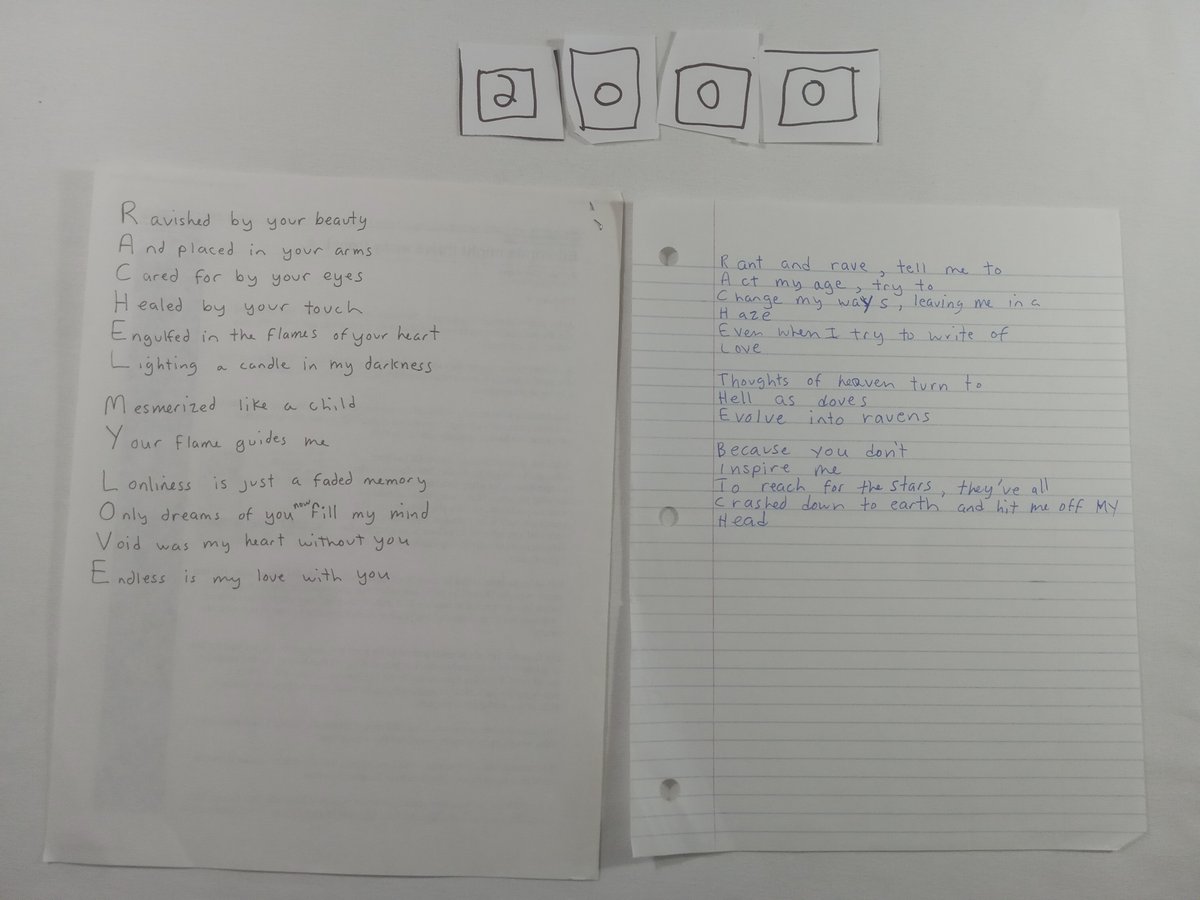 2 0 0 0
Ravished by your beauty
And placed in your arms
Cared for by your eyes
Healed by your touch
Engulfed in the flames of your heart
Lighting a candle in my darkness
Mesmerized like a child
Your flame guides me
Lonliness is just a faded memory
Only dreams of you now fill my mind
Void was my heart without you
Endless is my love with you
Rant and rave, tell me to
Act my age, try to
Change my ways, leaving me in a
Haze
Even when I try to write of
Love
Thoughts of heaven turn to
Hell as doves
Evolve into ravens
Because you don't
Inspire me
To reach for the stars, they've all
Crashed down to earth and hit me off MY
Head